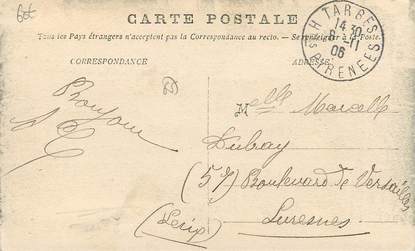 CARTE POSTALE
Tous les Pays étrangers n'acceptent pas la Correspondance au recto. — Se renseigner à la Poste.
CORRESPONDANCE
ADRESSE
TARBES
14 30
8 - 11
06
HTES PYRENEES
Bonjour
Melle Marcelle
Dubay
(57 Boulevard de Versailles
Suresnes
(Seine)